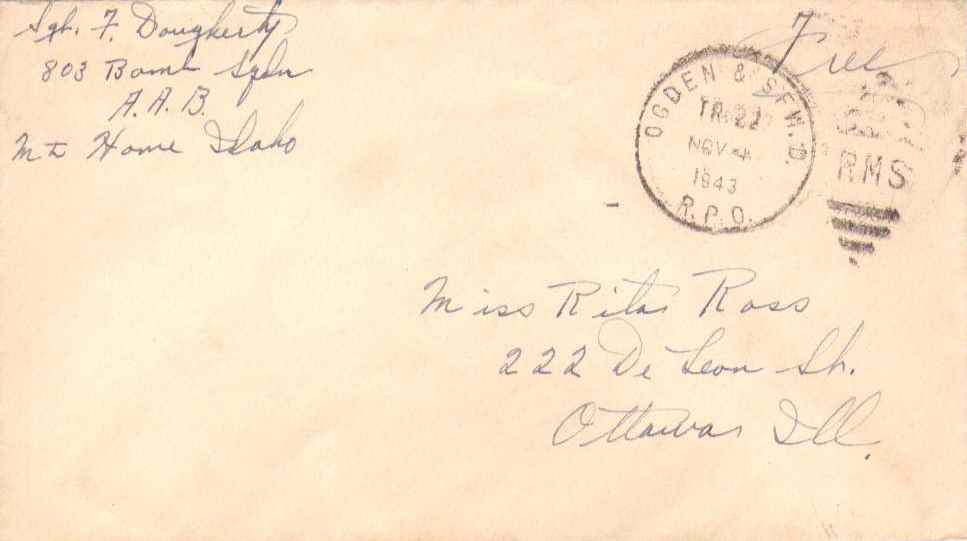 Sgt. F. Dougherty
803 Bomb Sqdn
A.A.B.
Mt Home Idaho
Free
OGDEN & S.F.W.D.
TR 22
NOV 4
1943
R.P.O.
RMS
Miss Rita Ross
222 De Leon St.
Ottawa Ill.